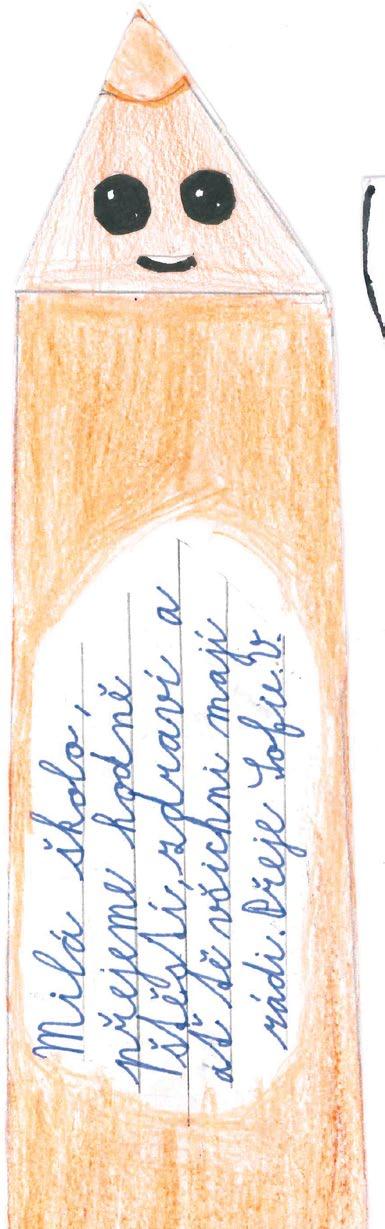 Milá školo,
přejeme hodně
štěstí, zdraví a
ať tě všichni mají
rádi. Přeje Sofie.V.